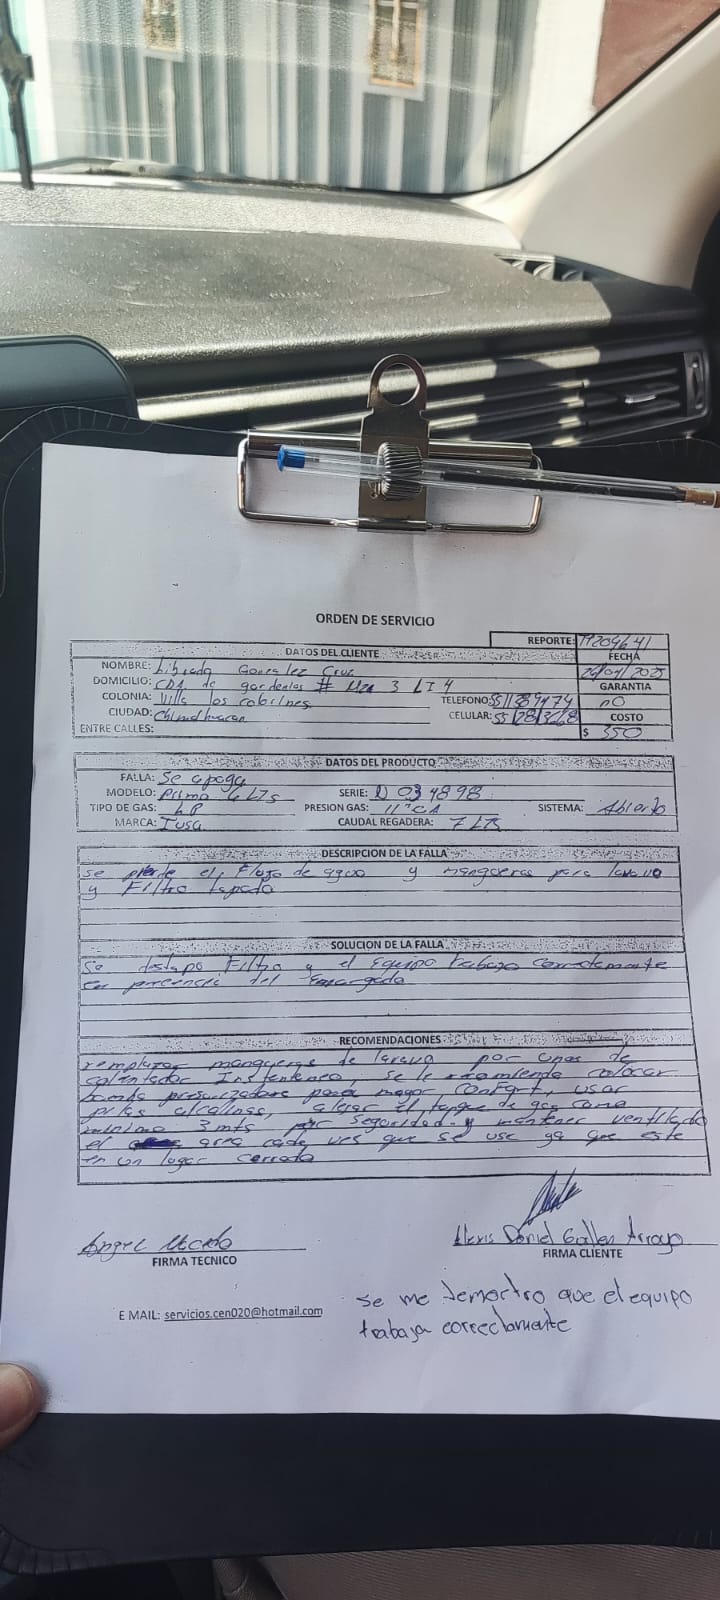 ORDEN DE SERVICIO
REPORTE:
DATOS DEL CLIENTE
FECHA
NOMBRE: Gonzalez Cruz
DOMICILIO: CDA de gardenias # Mza 3 LT 4
GARANTIA
COLONIA: Villa los
TELEFONO:
NO
CIUDAD: Chimalhuacan
CELULAR:
COSTO
ENTRE CALLES:
$ 350
DATOS DEL PRODUCTO
FALLA: Se apaga
MODELO: Prima 6 LTs
SERIE: D 034898
TIPO DE GAS: LP
PRESION GAS: 11"CA
SISTEMA: Abierto
MARCA: Iusa
CAUDAL REGADERA: 7 LTs
DESCRIPCION DE LA FALLA
se pierde el Flujo de agua y mangueras para lavavo
y Filtro tapado
SOLUCION DE LA FALLA
Se destapo Filtro y el Equipo trabaja correctamente
en precencia del Emcargado
RECOMENDACIONES
remplazar mangueras de lavavo por unas de
calentador Instantaneo, se le recomienda colocar
bomba presurizadora para mayor confort, usar
pilas alcalinas, alejar El tanque de gas como
minimo 3 mts por seguridad y mantener ventilado
el area cada ves que se use ya que este
en un lugar cerrado
Angel
Alexis Daniel Arroyo
FIRMA TECNICO
FIRMA CLIENTE
E MAIL: servicios.cen020@hotmail.com
se me demostro que el equipo
trabaja correctamente